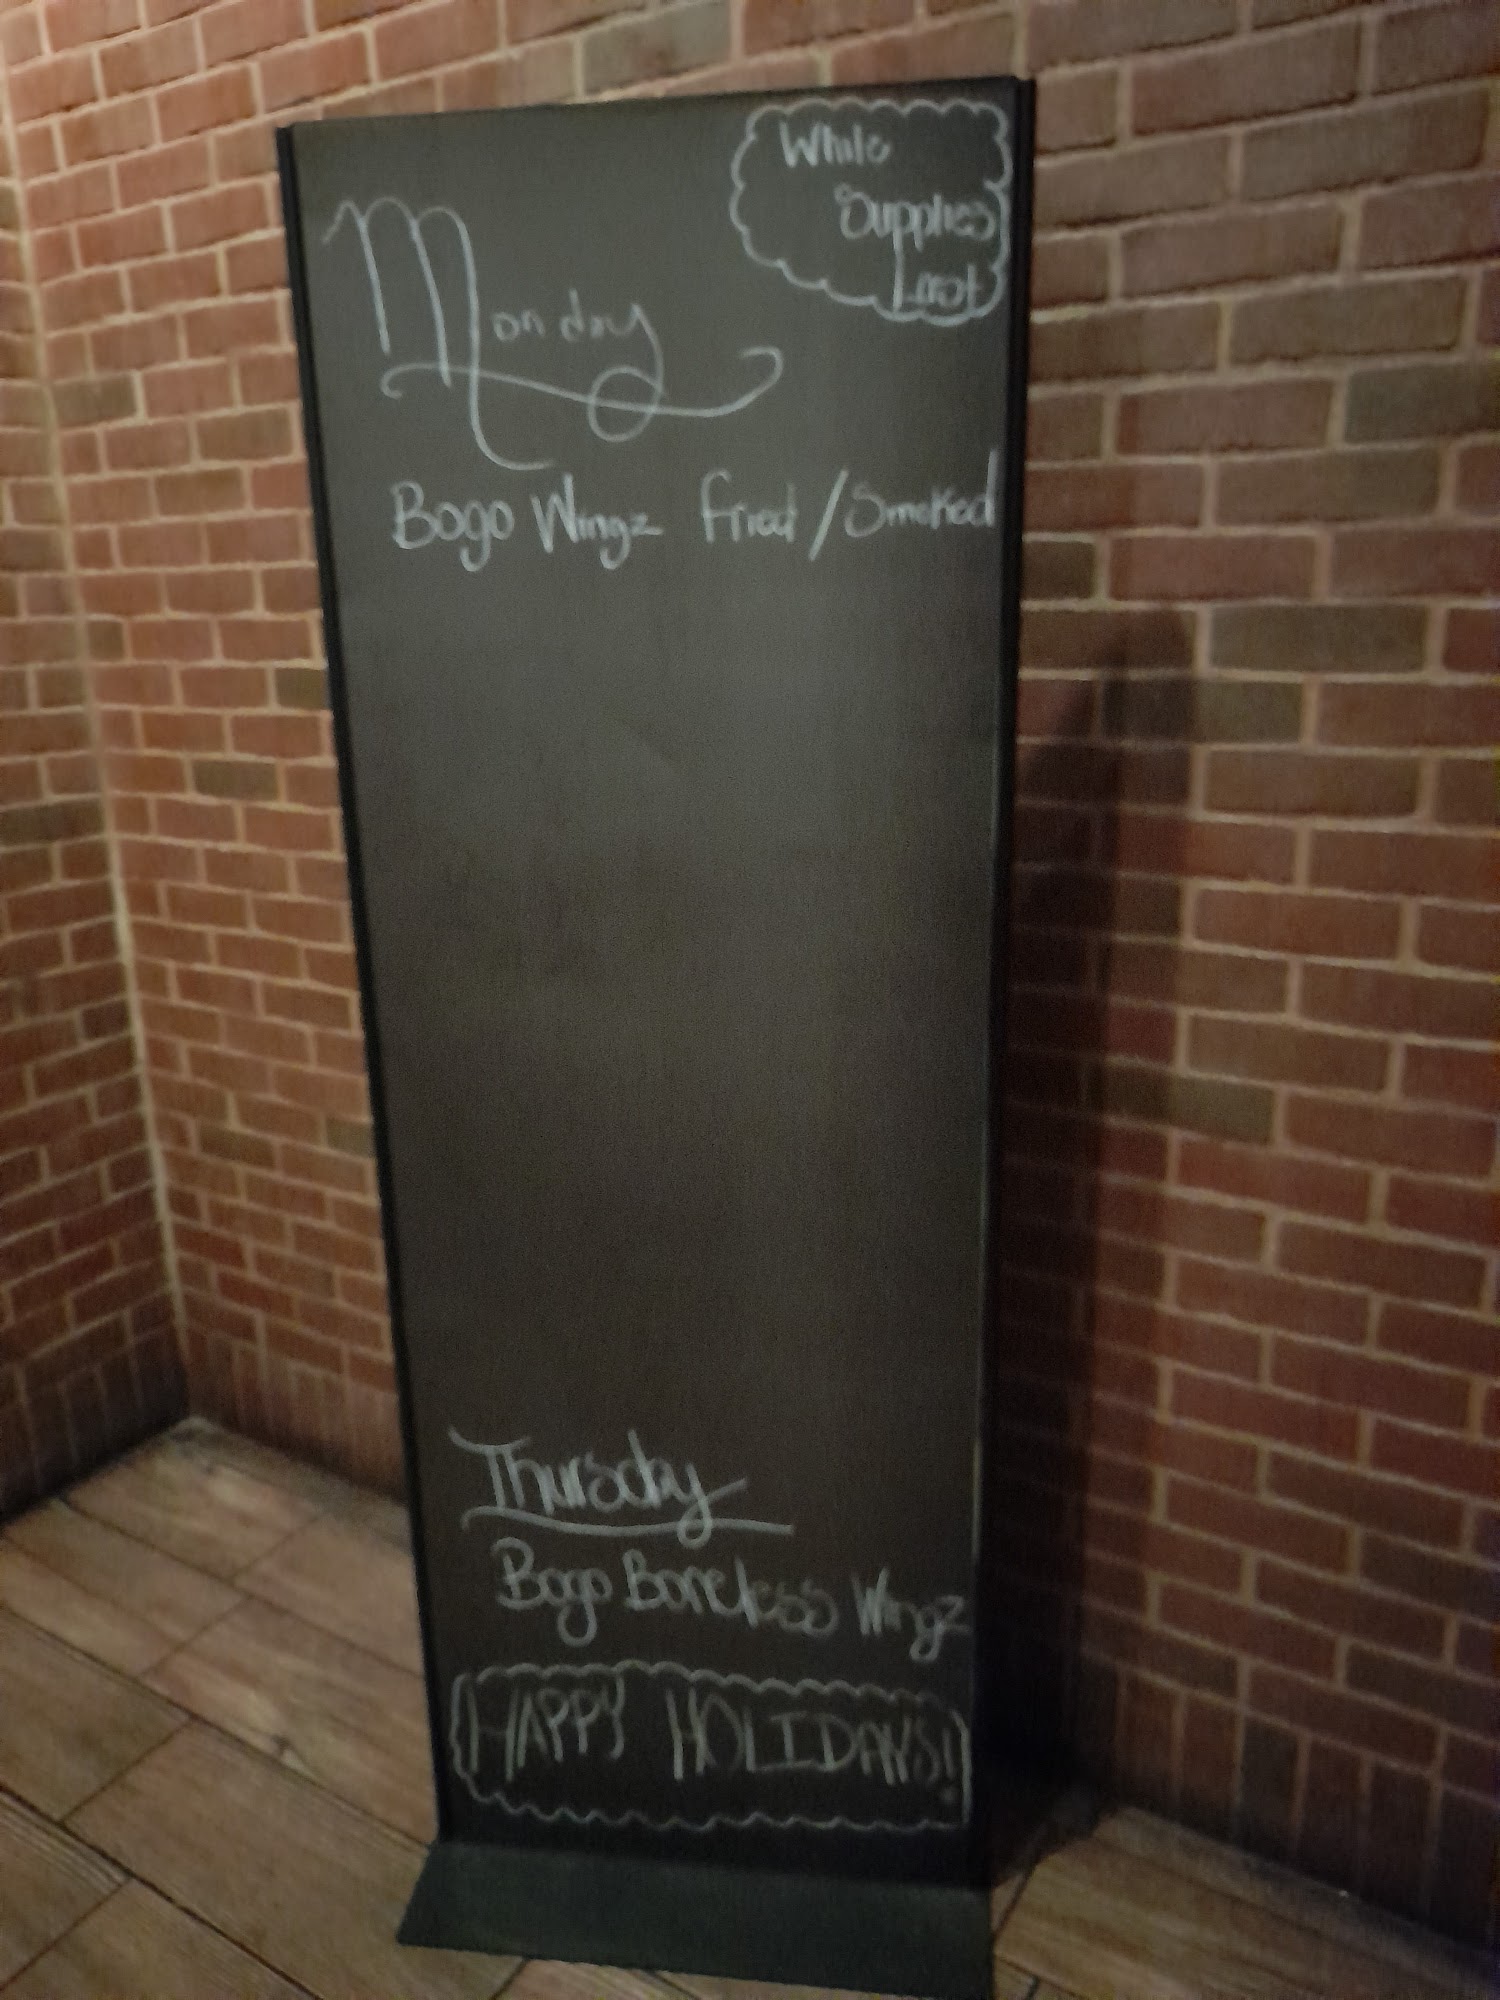 While
Supplies
Last
Monday
Bogo Wingz fried / Smoked
Thursday
Bogo Boneless Wingz
HAPPY HOLIDAYS!